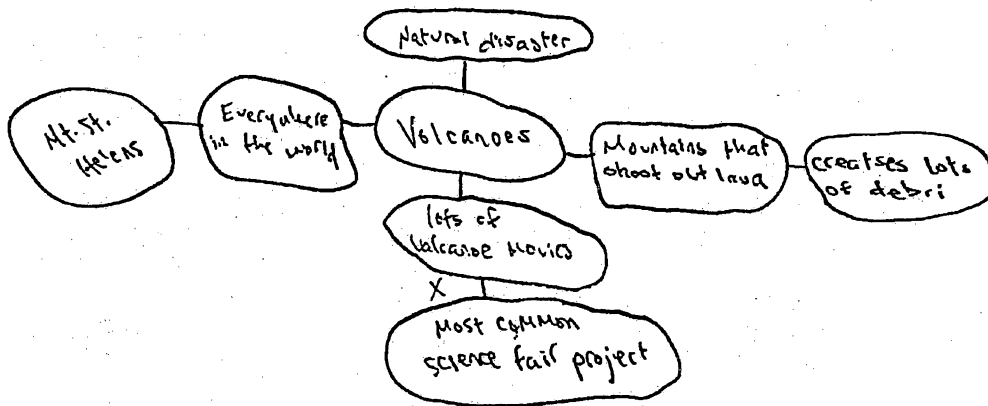 Natural disaster
Mt. St.
Helens
Everywhere
in the world
Volcanoes
Mountains that
shoot out lava
creatses lots
of debri
lots of
Valcanoe Movies
X
Most common
science fair project